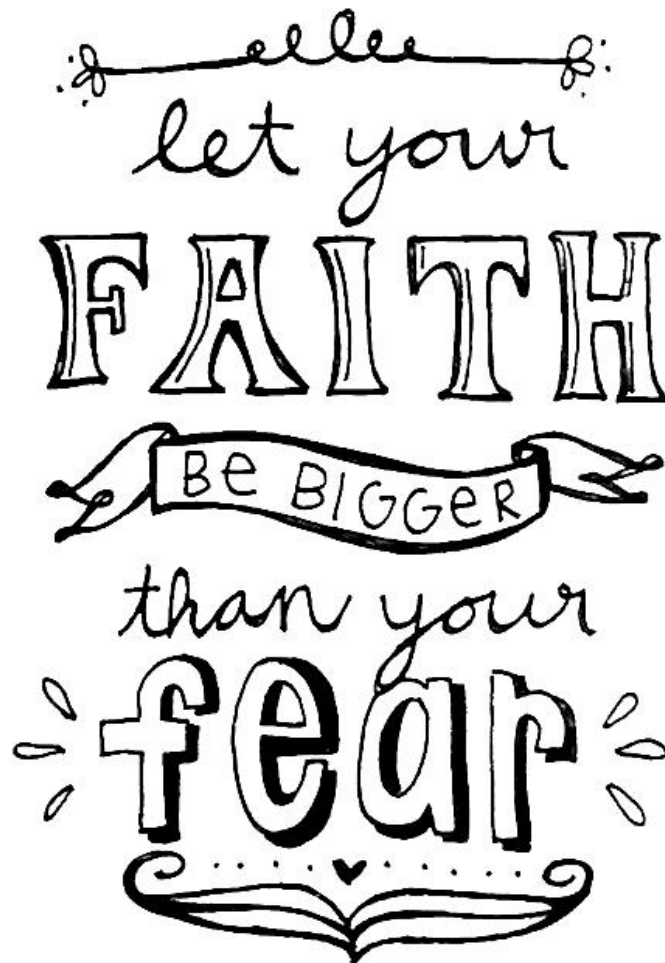 let your
FAITH
Be BIGGeR
than your
fear